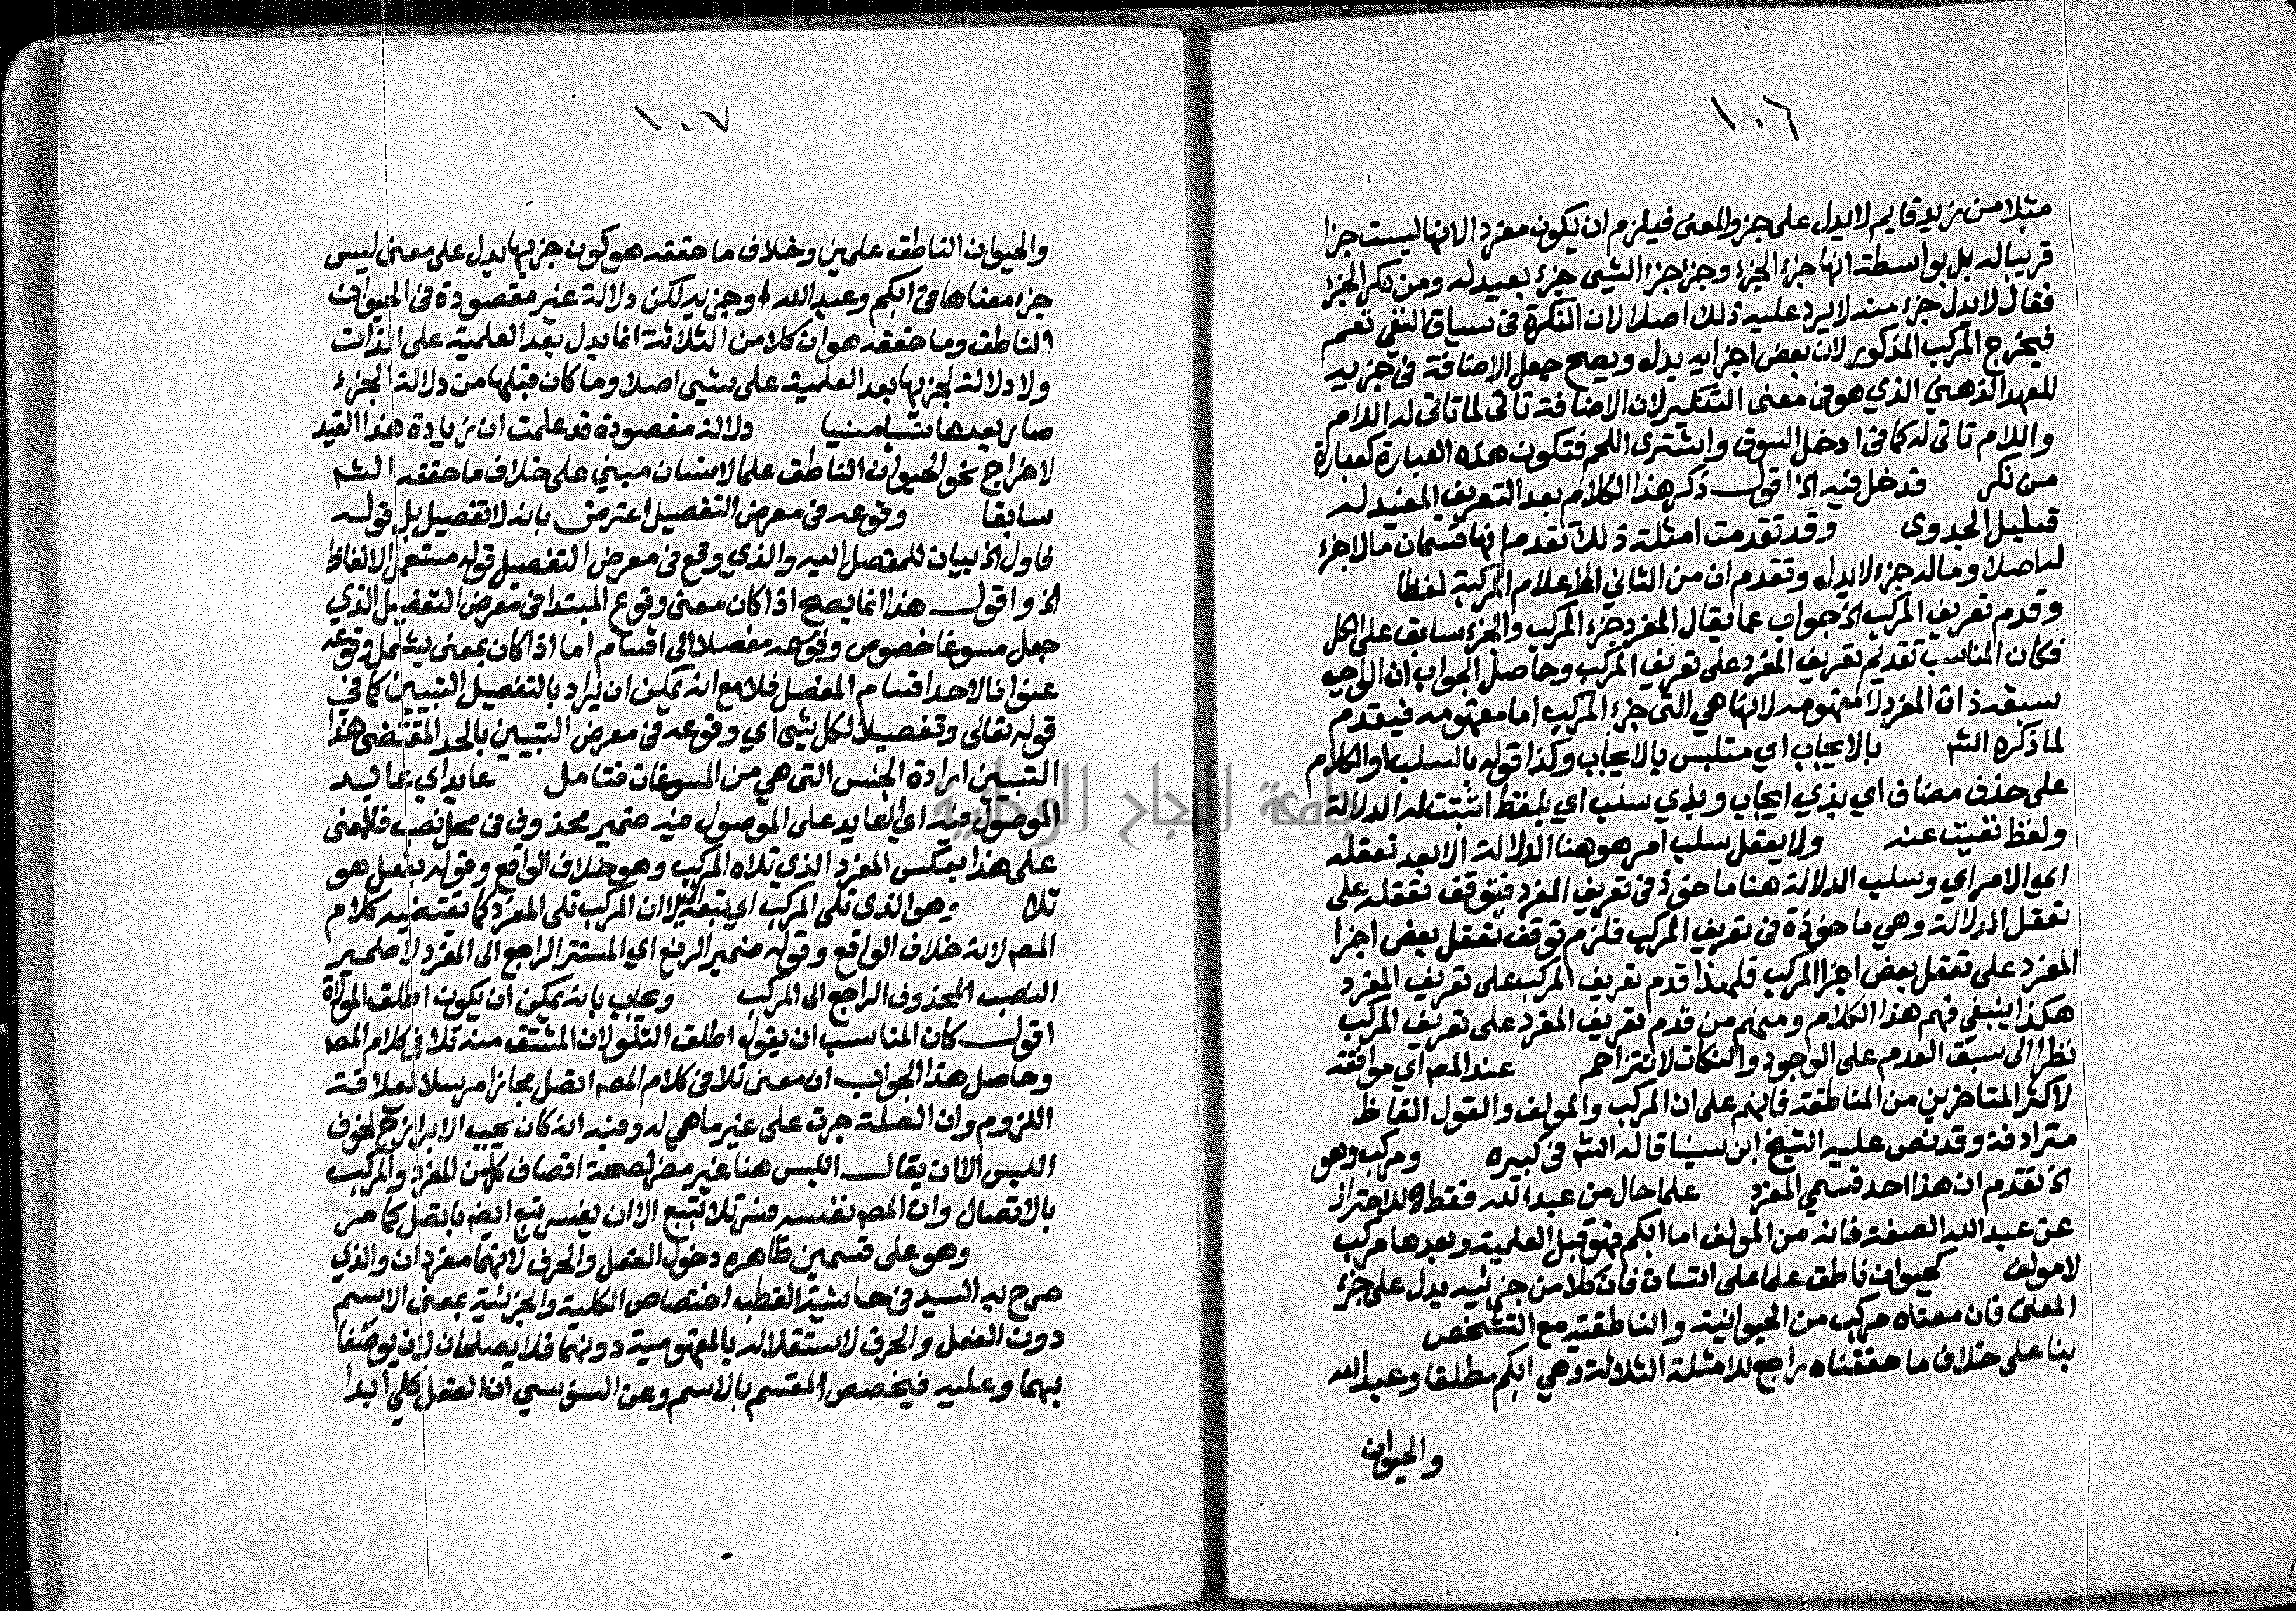 ١٠٦
مثلا من زيد قايم لا يدل على جزء المعنى فيلزم ان يكون مفردا لانها ليست جزا
قريبا له بل بواسطة انها جزء الجزء وجزء جزء الشيى جزء بعيد له ومن نكر الجزء
فقال لا يدل جزء منه لا يرد عليه ذلك اصلا لان النكرة في سياق النفي تعم
فيخرج المركب المذكور لان بعض اجزايه يدل ويصح جعل الاضافة في جزييه
للعهد الذهني الذي هو في معنى التنكير لان الاضافة تاتى لما تاتى له اللام
واللام تاتى له كما في ادخل السوق واشترى اللحم فتكون هذه العبارة كعبارة
من نكر قد خل فيه الخ اقول ذكر هذا الكلام بعد التعريف المفيد له
قليل الجدوى وقد تقدمت امثلة ذلك تقدم انها قسمان ما لا جزء
له اصلا وما له جزء لا يدل وتقدم ان من الثاني الاعلام المركبة لفظا
وقدم تعريف المركب الخ جواب عما يقال المفرد جزء المركب والجزء سابق على الكل
فكان المناسب تقديم تعريف المفرد على تعريف المركب وحاصل الجواب ان الواجب
سبقه ذات المفرد لا مفهومه لانها هي التى جزء المركب اما مفهومه فيقدم
لما ذكره الشم بالايجاب اي متلبس بالايجاب وكذا قوله بالسلب او الكلام
على حذف مضاف اي بذي ايجاب وبذي سلب اي بلفظ اثبتت له الدلالة
ولفظ نفيت عنه ولا يعقل سلب امر هو هنا الدلالة الا بعد تعقله
اي الامر اي وسلب الدلالة هنا ماخوذ في تعريف المفرد فتوقف تعقله على
تعقل الدلالة وهي ماخوذة في تعريف المركب فلزم توقف تعقل بعض اجزا
المفرد على تعقل بعض اجزا المركب فلهذا قدم تعريف المركب على تعريف المفرد
هكذا ينبغي فهم هذا الكلام ومنهم من قدم تعريف المفرد على تعريف المركب
نظرا الى سبق العدم على الوجود والنكات لا تتزاحم عند المص اي موافقة
لاكثر المتاخرين من المناطقة فانهم على ان المركب والمولف والقول الفاظ
مترادفة وقد نص عليه الشيخ ابن سينا قاله الشم في كبيره ومركب وهو
الخ تقدم ان هذا احد قسمي المفرد علما حال من عبد الله فقط للاحتراز
عن عبد الله الصفة فانه من المولف اما ابكم فهو قبل العلمية وبعدها مركب
لا مولف كحيوان ناطق علما على انسان فان كلا من جزئيه يدل على جزء
المعنى فان معناه مركب من الحيوانية والناطقية مع التشخص
بنا على خلاف ما حققناه راجع للامثلة الثلاثة وهي ابكم مطلقا وعبد الله
والحيوان
١٠٧
والحيوان الناطق علمين وخلاف ما حققه هو كون جزيها يدل على معنى ليس
جزء معناها في ابكم وعبد الله وجزيه لكن دلالة غير مقصودة في الحيوان
الناطق وما حققه هو ان كلا من الثلاثة انما يدل بعد العلمية على الذات
ولا دلالة لجزيها بعد العلمية على شيى اصلا وما كان قبلها من دلالة الجزء
صار بعدها نسيا منسيا دلالة مقصودة قد علمت ان زيادة هذا القيد
لاخراج نحو الحيوان الناطق علما لانسان مبني على خلاف ما حققه الشم
سابقا وقوعه في معرض التفصيل اعترض بانه لا تفصيل بل قوله
فاول الخ بيان للمفصل اليه والذي وقع في معرض التفصيل قوله مستعمل الالفاظ
الخ واقول هذا انما يصح اذا كان معنى وقوع المبتدا في معرض التفصيل الذي
جعل مسوغا خصوص وقوعه مفصلا الى اقسام اما اذا كان بمعنى يشمل وقوعه
عنوانا لاحد اقسام المفصل فلا مع انه يمكن ان يراد بالتفصيل التبيين كما في
قوله تعالى وتفصيلا لكل شيى اي وقوعه في معرض التبيين بالحد المقتضى هذا
التبيين ارادة الجنس التى هي من المسوغات فتامل عايد اي عاليه
الموصول فيه اي العايد على الموصول فيه ضمير محذوف في محل نصب فالمعنى
على هذا بعكس المفرد الذي تلاه المركب وهو خلاف الواقع وقوله بفعل هو
تلا وهو الذى تلى المركب اي يتبعه لان المركب تلى المفرد كما تقتضيه كلام
المص لانه خلاف الواقع وقوله ضمير الرفع اي المستتر الراجع الى المفرد لا ضمير
النصب المحذوف الراجع الى المركب ويجاب بانه يمكن ان يكون اطلق الموالاة
اقول كان المناسب ان يقول اطلق التلو لان المشتق منه تلا في كلام المص
وحاصل هذا الجواب ان معنى تلا في كلام المص اتصل مجازا مرسلا لعلاقة
اللزوم وان الصلة جرت على غير ما هي له وفيه انه كان يجب الابراز ح لخوف
اللبس الا ان يقال اللبس هنا غير مضر لصحة اتصاف كل من المفرد والمركب
بالاتصال وان المص نفسه فسر تلا بتبع الا ان يفسر تبع ايضه باتصل كما مر
وهو على قسمين ظاهره دخول الفعل والحرف لانهما مفردان والذي
صرح به السيد في حاشية القطب اختصاص الكلية والجزئية بمعنى الاسم
دون الفعل والحرف لاستقلاله بالمفهومية دونهما فلا يصلحان لان يوصفا
بهما وعليه فيخصص المقسم بالاسم وعن السنوسي ان الفعل كلي ابدا
جامعة النجاح الوطنية